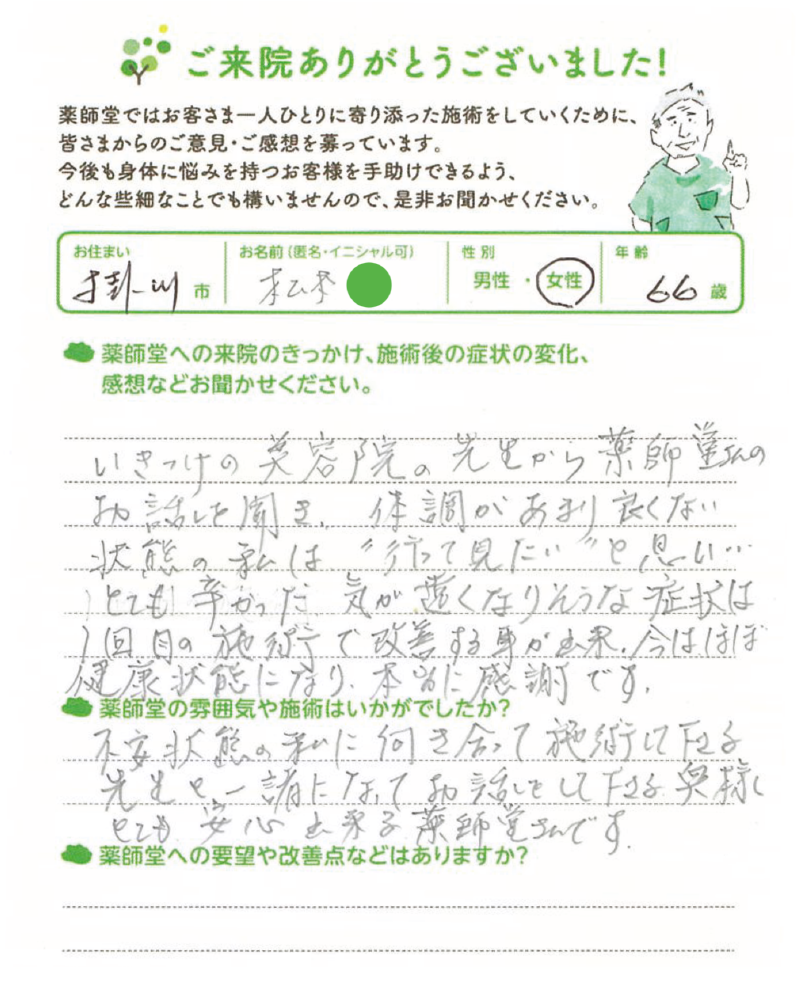 ご来院ありがとうございました!
薬師堂ではお客さま一人ひとりに寄り添った施術をしていくために、
皆さまからのご意見・ご感想を募っています。
今後も身体に悩みを持つお客様を手助けできるよう、
どんな些細なことでも構いませんので、是非お聞かせください。
お住まい お名前(匿名・イニシャル可) 性別 年齢
掛川市 松本 男性・女性 66歳
薬師堂への来院のきっかけ、施術後の症状の変化、
感想などお聞かせください。
いきつけの美容院の先生から薬師堂さんの
お話しを聞き、体調があまり良くない
状態の私は"行って見たい"と思い…
とても辛かった気が遠くなりそうな症状は
1回目の施術で改善する事が出来、今はほぼ
健康状態になり、本当に感謝です。
薬師堂の雰囲気や施術はいかがでしたか?
不安状態の私に向き合って施術して下さる
先生と、一諸になってお話しをして下さる奥様に
とても安心出来る薬師堂さんです。
薬師堂への要望や改善点などはありますか?